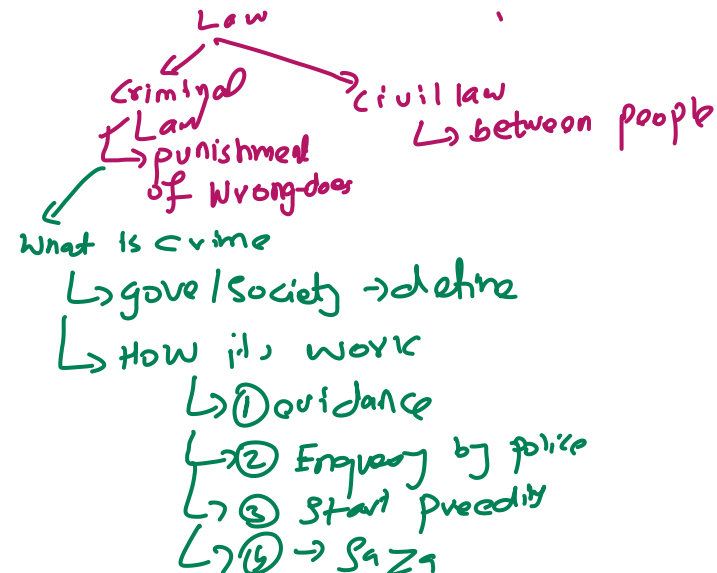 Law
Criminal Law
civil law
↳ between people
↳ punishment of Wrong-does
What is crime
↳ gove/society → define
↳ How it's work
↳ ① evidance
↳ ② Enquery by police
↳ ③ Start
↳ → Saza